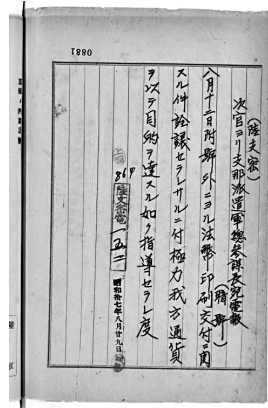 0881
(陸支密)
次官ヨリ支那派遣軍總参謀長宛電報
(暗號)
八月十二日附號外ニヨル法幣ノ印刷交付ニ関
スル件詮議セラレサルニ付極力我方通貨
ヲ以テ目的ヲ達スル如ク指導セラレ度
陸支密電一五二
昭和拾七年八月廿九日